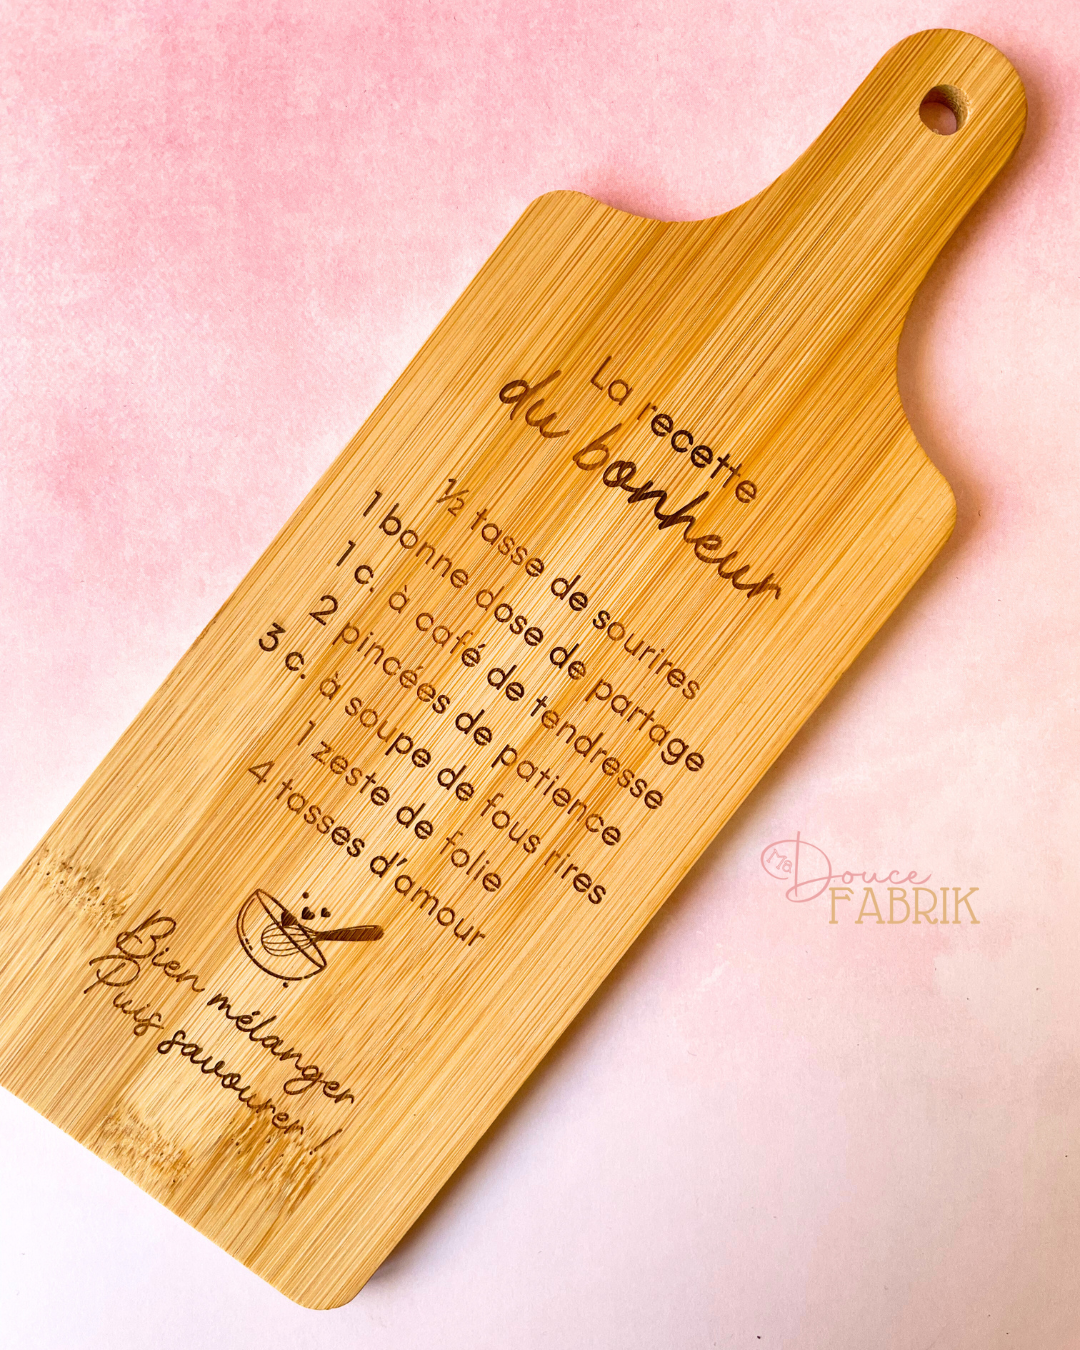 La recette
du bonheur
½ tasse de sourires
1 bonne dose de partage
1 c. à café de tendresse
2 pincées de patience
3 c. à soupe de fous rires
1 zeste de folie
4 tasses d'amour
Bien mélanger
Puis savourer !
Ma Douce
FABRIK